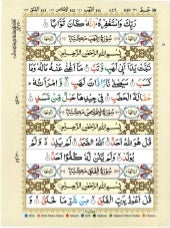 رَبِّكَ وَاسْتَغْفِرْهُ اِنَّهٗ كَانَ تَوَّابًا
سُوْرَةُ اللَّهَبِ مَكِّيَّةٌ
بِسْمِ اللّٰهِ الرَّحْمٰنِ الرَّحِيْمِ
تَبَّتْ يَدَآ اَبِيْ لَهَبٍ وَّتَبَّ مَآ اَغْنٰى عَنْهُ مَالُهٗ وَمَا
كَسَبَ سَيَصْلٰى نَارًا ذَاتَ لَهَبٍ وَّامْرَاَتُهٗ
حَمَّالَةَ الْحَطَبِ فِيْ جِيْدِهَا حَبْلٌ مِّنْ مَّسَدٍ
سُوْرَةُ الْاِخْلَاصِ مَكِّيَّةٌ
بِسْمِ اللّٰهِ الرَّحْمٰنِ الرَّحِيْمِ
قُلْ هُوَ اللّٰهُ اَحَدٌ اَللّٰهُ الصَّمَدُ لَمْ يَلِدْ
وَلَمْ يُوْلَدْ وَلَمْ يَكُنْ لَّهٗ كُفُوًا اَحَدٌ
بِسْمِ اللّٰهِ الرَّحْمٰنِ الرَّحِيْمِ
قُلْ اَعُوْذُ بِرَبِّ الْفَلَقِ مِنْ شَرِّ مَا خَلَقَ